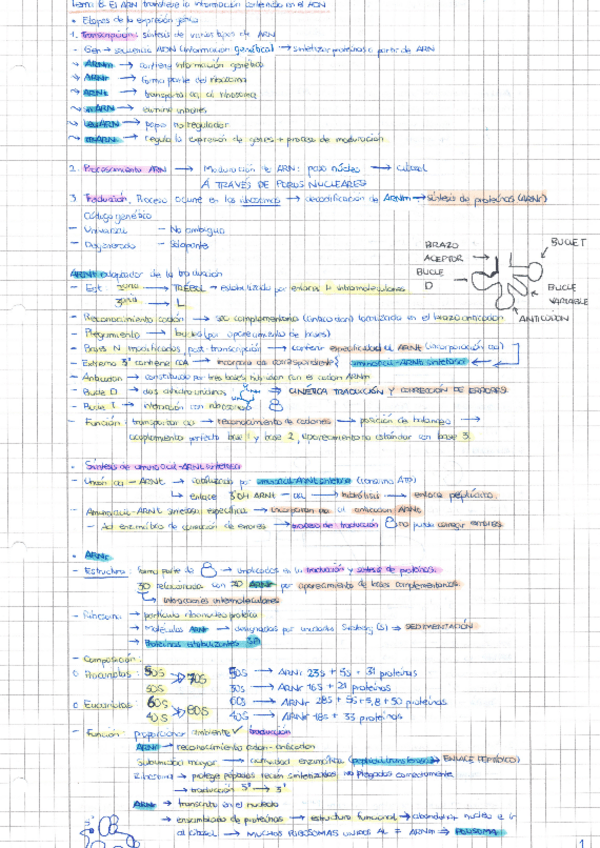 Tema 6: El ARN transfiere la información contenida en el ADN
• Etapas de la expresión génica
1. Transcripción: síntesis de varios tipos de ARN
- Gen → secuencia ADN (información genética) → sintetizar proteínas a partir de ARN
ARNm → contiene información genética
ARNr → forma parte del ribosoma
ARNt → transporta aa al ribosoma
ARN → elimina intrones
ARN → papel regulador
ARN → regula la expresión de genes + proceso de maduración
2. Procesamiento ARN → Maduración de ARN: paso núcleo → citosol
A TRAVÉS DE POROS NUCLEARES
3. Traducción. Proceso ocurre en los ribosomas → decodificación de ARNm → síntesis de proteínas (ARNr)
Código genético
- Universal - No ambiguo
- Degenerado - Solapante
BRAZO ACEPTOR
BUCLE D
BUCLE T
BUCLE VARIABLE
ANTICODÓN
ARNt adaptador de la traducción
- Est 2aria → TRÉBOL → estabilizada por enlaces H intramoleculares
3aria → L
- Reconocimiento codón → sec complementaria (anticodón) localizada en el brazo anticodón
- Plegamiento → bucles (por apareamiento de bases)
- Bases N modificadas post-transcripción → confiere especificidad al ARNt (incorporación aa)
- Extremo 3' contiene CCA → incorpora aa correspondiente aminoacil-ARNt sintetasa
- Anticodón → constituido por tres bases, hibridan con el codón ARNm
- Bucle D → dos dihidrouridinas → CINÉTICA TRADUCCIÓN Y CORRECCIÓN DE ERRORES
- Bucle T → interacción con ribosoma
- Función: transportar aa → reconocimiento de codones → posición de balanceo →
acoplamiento perfecto base 1 y base 2, apareamiento no estándar con base 3.
• Síntesis de aminoacil-ARNt sintetasa
- Unión aa - ARNt → catalizada por aminoacil-ARNt sintetasa (consumo ATP)
enlace 3'OH ARNt - aa → hidrólisis → enlace peptídico
- Aminoacil-ARNt sintetasa específica → incorporación aa al anticodón ARNt
- Act enzimática de corrección de errores → proceso de traducción no puede corregir errores
• ARNr
- Estructura: forma parte de → implicados en la traducción y síntesis de proteínas.
3D relacionada con 2D ARNr por apareamiento de bases complementarias.
interacciones intermoleculares
- Ribosoma → partícula ribonucleoproteica
→ Moléculas ARNr → designadas por unidades Svedberg (S) → SEDIMENTACIÓN
→ Proteínas estabilizantes 3D
- Composición:
○ Procariotas: 50S 30S >> 70S
50S → ARNr 23S + 5S + 31 proteínas
30S → ARNr 16S + 21 proteínas
○ Eucariotas: 60S 40S >> 80S
60S → ARNr 28S + 5S + 5,8 + 50 proteínas
40S → ARNr 18S + 33 proteínas
- Función: proporcionar ambiente ✓ traducción
ARNr → reconocimiento codón-anticodón
Subunidad mayor → actividad enzimática (peptidil transferasa → ENLACE PEPTÍDICO)
Ribosoma → protege péptidos recién sintetizados no plegados correctamente
→ traducción 5' → 3'
ARNr → transcrito en el nucléolo
→ ensamblado de proteínas → estructura funcional → abandonar núcleo e ir
al citosol → MUCHOS RIBOSOMAS UNIDOS AL = ARNm → POLISOMA
5'
1